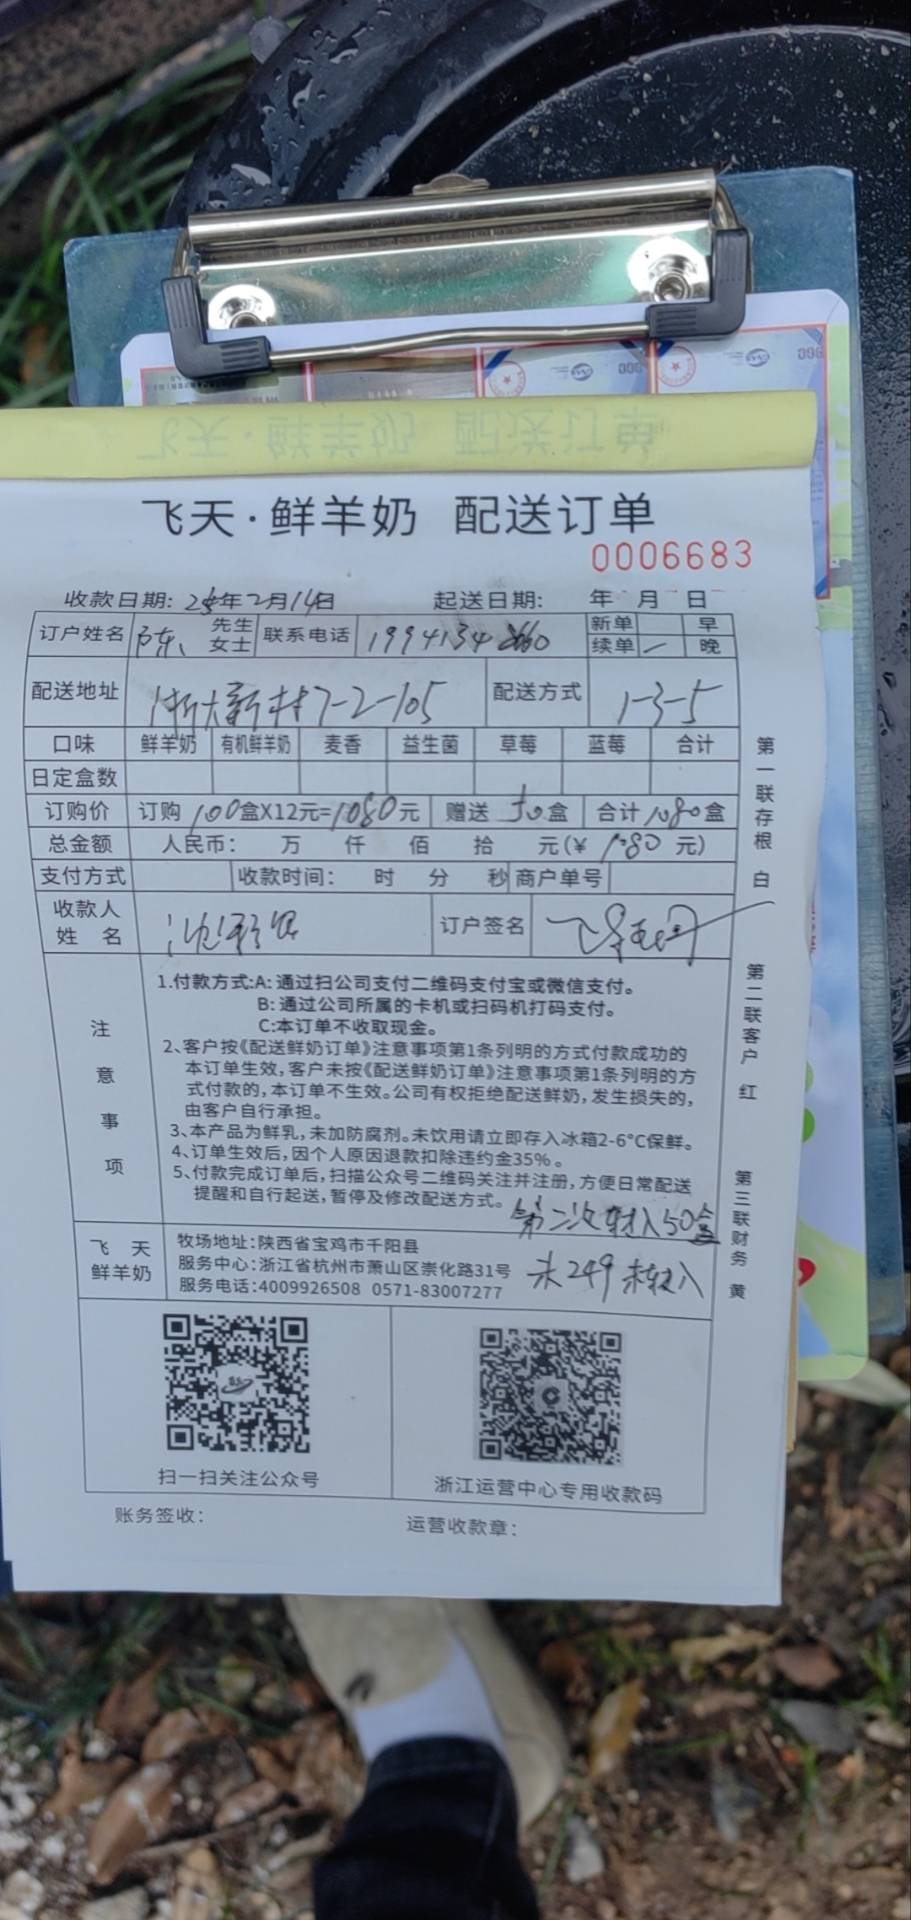 飞天·鲜羊奶 配送订单
0006683
收款日期: 25年2月14日 起送日期: 年 月 日
订户姓名 陈 先生 女士 联系电话 新单 早
续单 一 晚
配送地址 浙大新村7-2-105 配送方式 1-3-5
口味 鲜羊奶 有机鲜羊奶 麦香 益生菌 草莓 蓝莓 合计
日定盒数
订购价 订购 100盒X12元=1080元 赠送 50盒 合计1080盒
总金额 人民币: 万 仟 佰 拾 元(¥ 1080 元)
支付方式 收款时间: 时 分 秒 商户单号
收款人姓名 订户签名
注意事项
1.付款方式:A: 通过扫公司支付二维码支付宝或微信支付。
B: 通过公司所属的卡机或扫码机打码支付。
C:本订单不收取现金。
2、客户按《配送鲜奶订单》注意事项第1条列明的方式付款成功的
本订单生效,客户未按《配送鲜奶订单》注意事项第1条列明的方
式付款的,本订单不生效。公司有权拒绝配送鲜奶,发生损失的,
由客户自行承担。
3、本产品为鲜乳,未加防腐剂。未饮用请立即存入冰箱2-6°C保鲜。
4、订单生效后,因个人原因退款扣除违约金35%。
5、付款完成订单后,扫描公众号二维码关注并注册,方便日常配送
提醒和自行起送,暂停及修改配送方式。
第二次转入50盒
飞天鲜羊奶
牧场地址:陕西省宝鸡市千阳县
服务中心:浙江省杭州市萧山区崇化路31号
服务电话:4009926508 0571-83007277
未249未转入
扫一扫关注公众号
浙江运营中心专用收款码
账务签收:
运营收款章:
第一联存根 白
第二联客户 红
第三联财务 黄